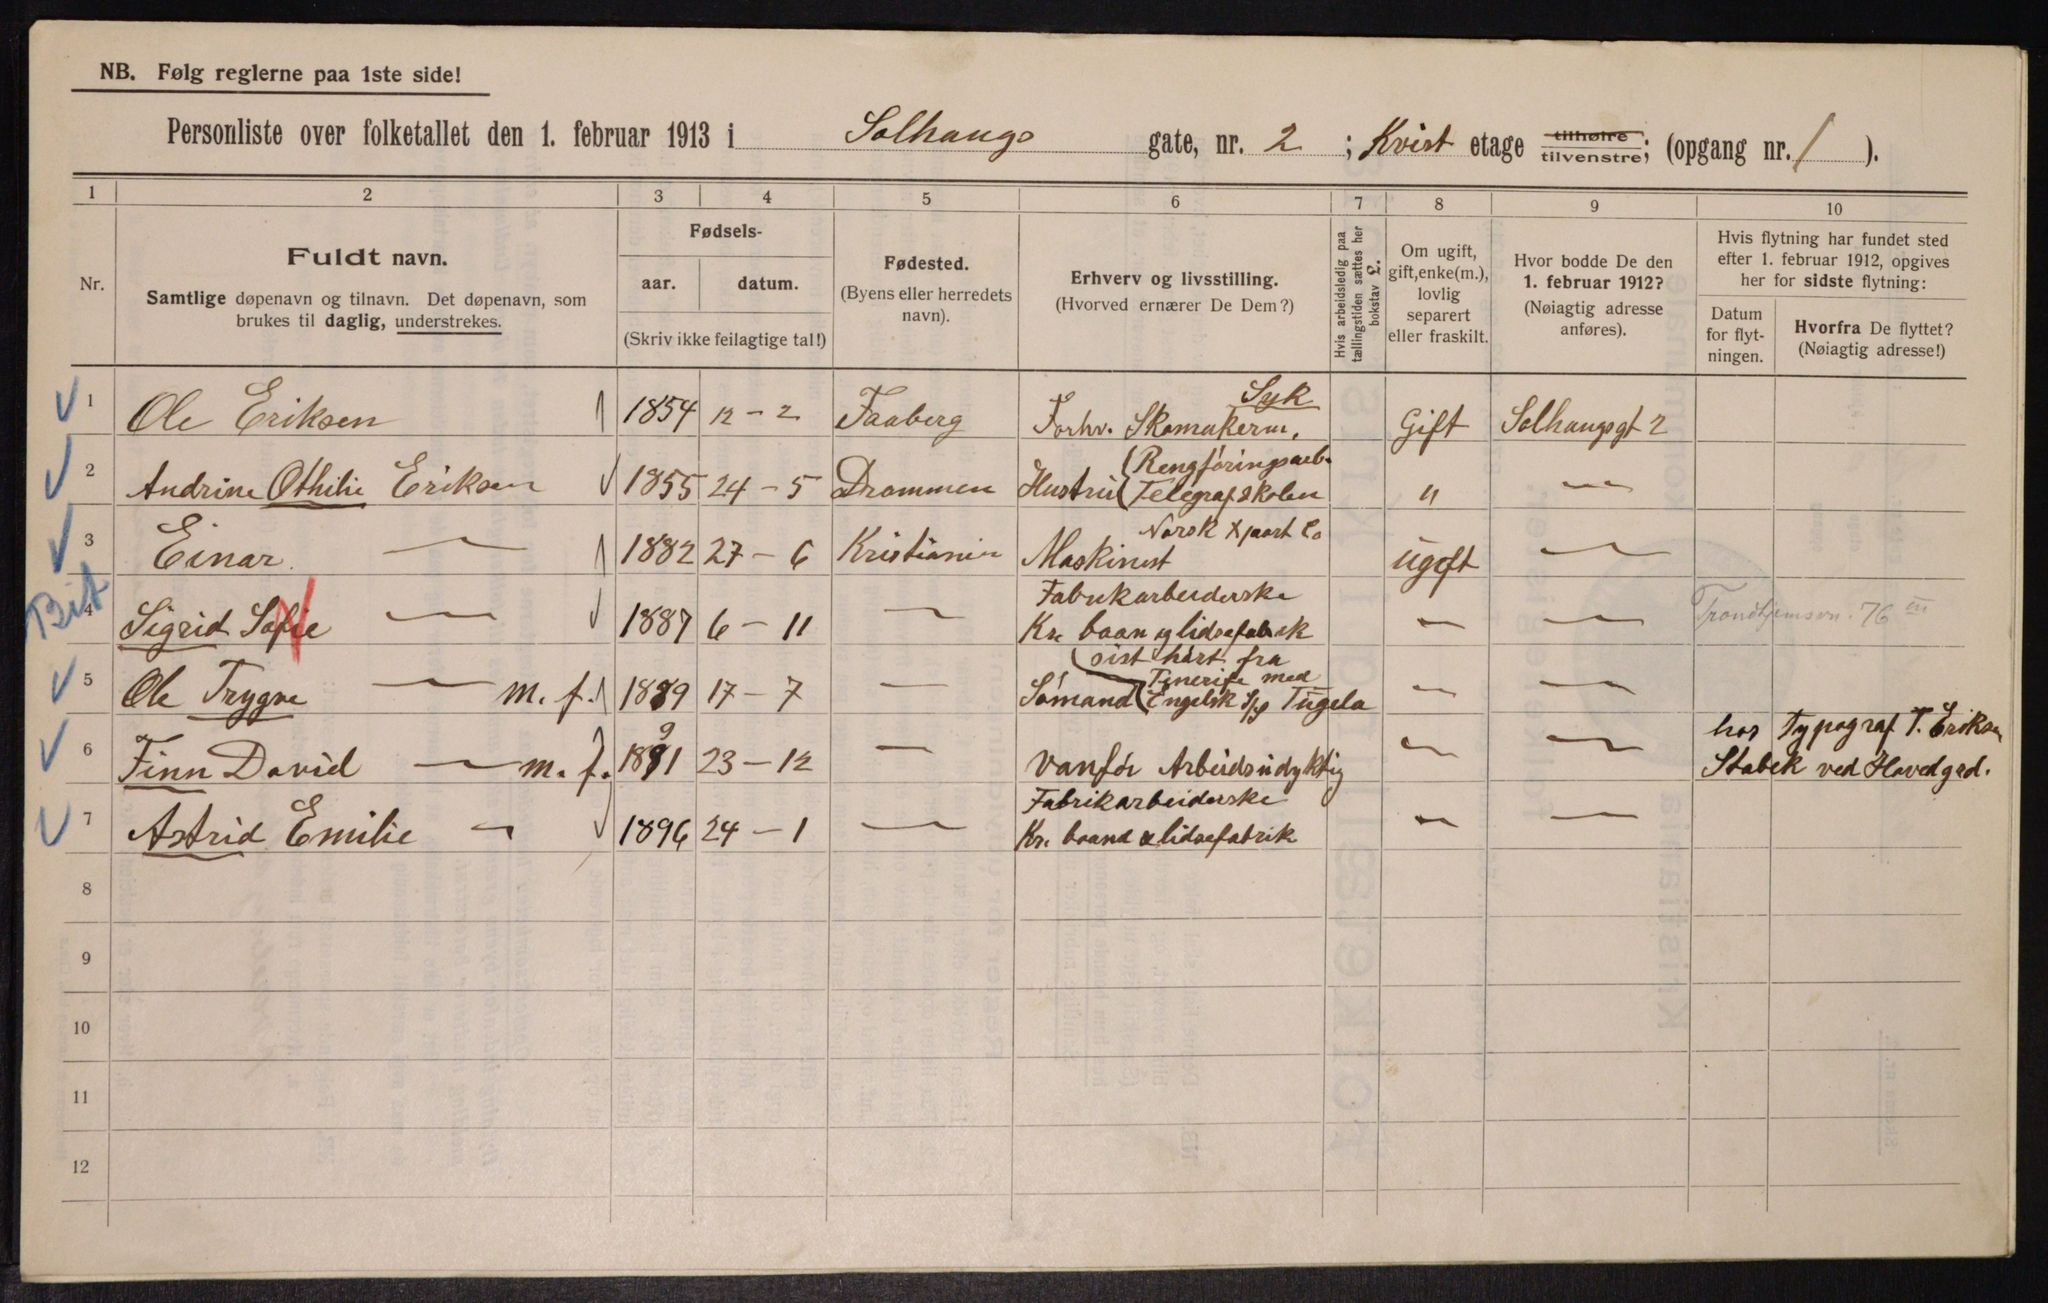 NB. Følg reglerne paa 1ste side!
Personliste over folketallet den 1. februar 1913 i Solhaugs gate, nr. 2 ; Kvist etage tilhøire tilvenstre; (opgang nr. 1 ).
1 2 3 4 5 6 7 8 9 10
Nr.
Fuldt navn.
Samtlige døpenavn og tilnavn. Det døpenavn, som
brukes til daglig, understrekes.
Fødsels-
aar. datum.
(Skriv ikke feilagtige tal!)
Fødested.
(Byens eller herredets
navn).
Erhverv og livsstilling.
(Hvorved ernærer De Dem?)
Hvis arbeidsledig paa
tællingstiden sættes her
bokstav L.
Om ugift,
gift, enke(m.),
lovlig
separert
eller fraskilt.
Hvor bodde De den
1. februar 1912?
(Nøiagtig adresse
anføres).
Hvis flytning har fundet sted
efter 1. februar 1912, opgives
her for sidste flytning:
Datum
for flyt-
ningen.
Hvorfra De flyttet?
(Nøiagtig adresse!)
Syk
1 Ole Eriksen 1854 12 - 2 Faaberg Forhv. Skomakerm. Gift Solhaugsgt 2
Rengjøringsarb.
2 Andrine Othilie Eriksen 1855 24 - 5 Drammen Hustru Telegrafskolen " —
Norsk Xport Co
3 Einar — 1882 27 - 6 Kristiania Maskinist ugift —
Bit
Fabrikarbeiderske
4 Sigrid Sofie — 1887 6 - 11 — Kr. baan og lidsefabrik — — Trondhjemsvn. 76 III
sist hört fra
Tenerife med
5 Ole Trygve — m. f. 1889 17 - 7 — Sömand Engelsk S/S Tugela — —
hos Typograf T. Eriksen
6 Finn David — m. f. 1891 23 - 12 — Vanför Arbeidsudyktig — — Stabek ved Hovedgrd.
Fabrikarbeiderske
7 Astrid Emilie — 1896 24 - 1 — Kr. baand & lidsefabrik — —
8
9
10
11
12